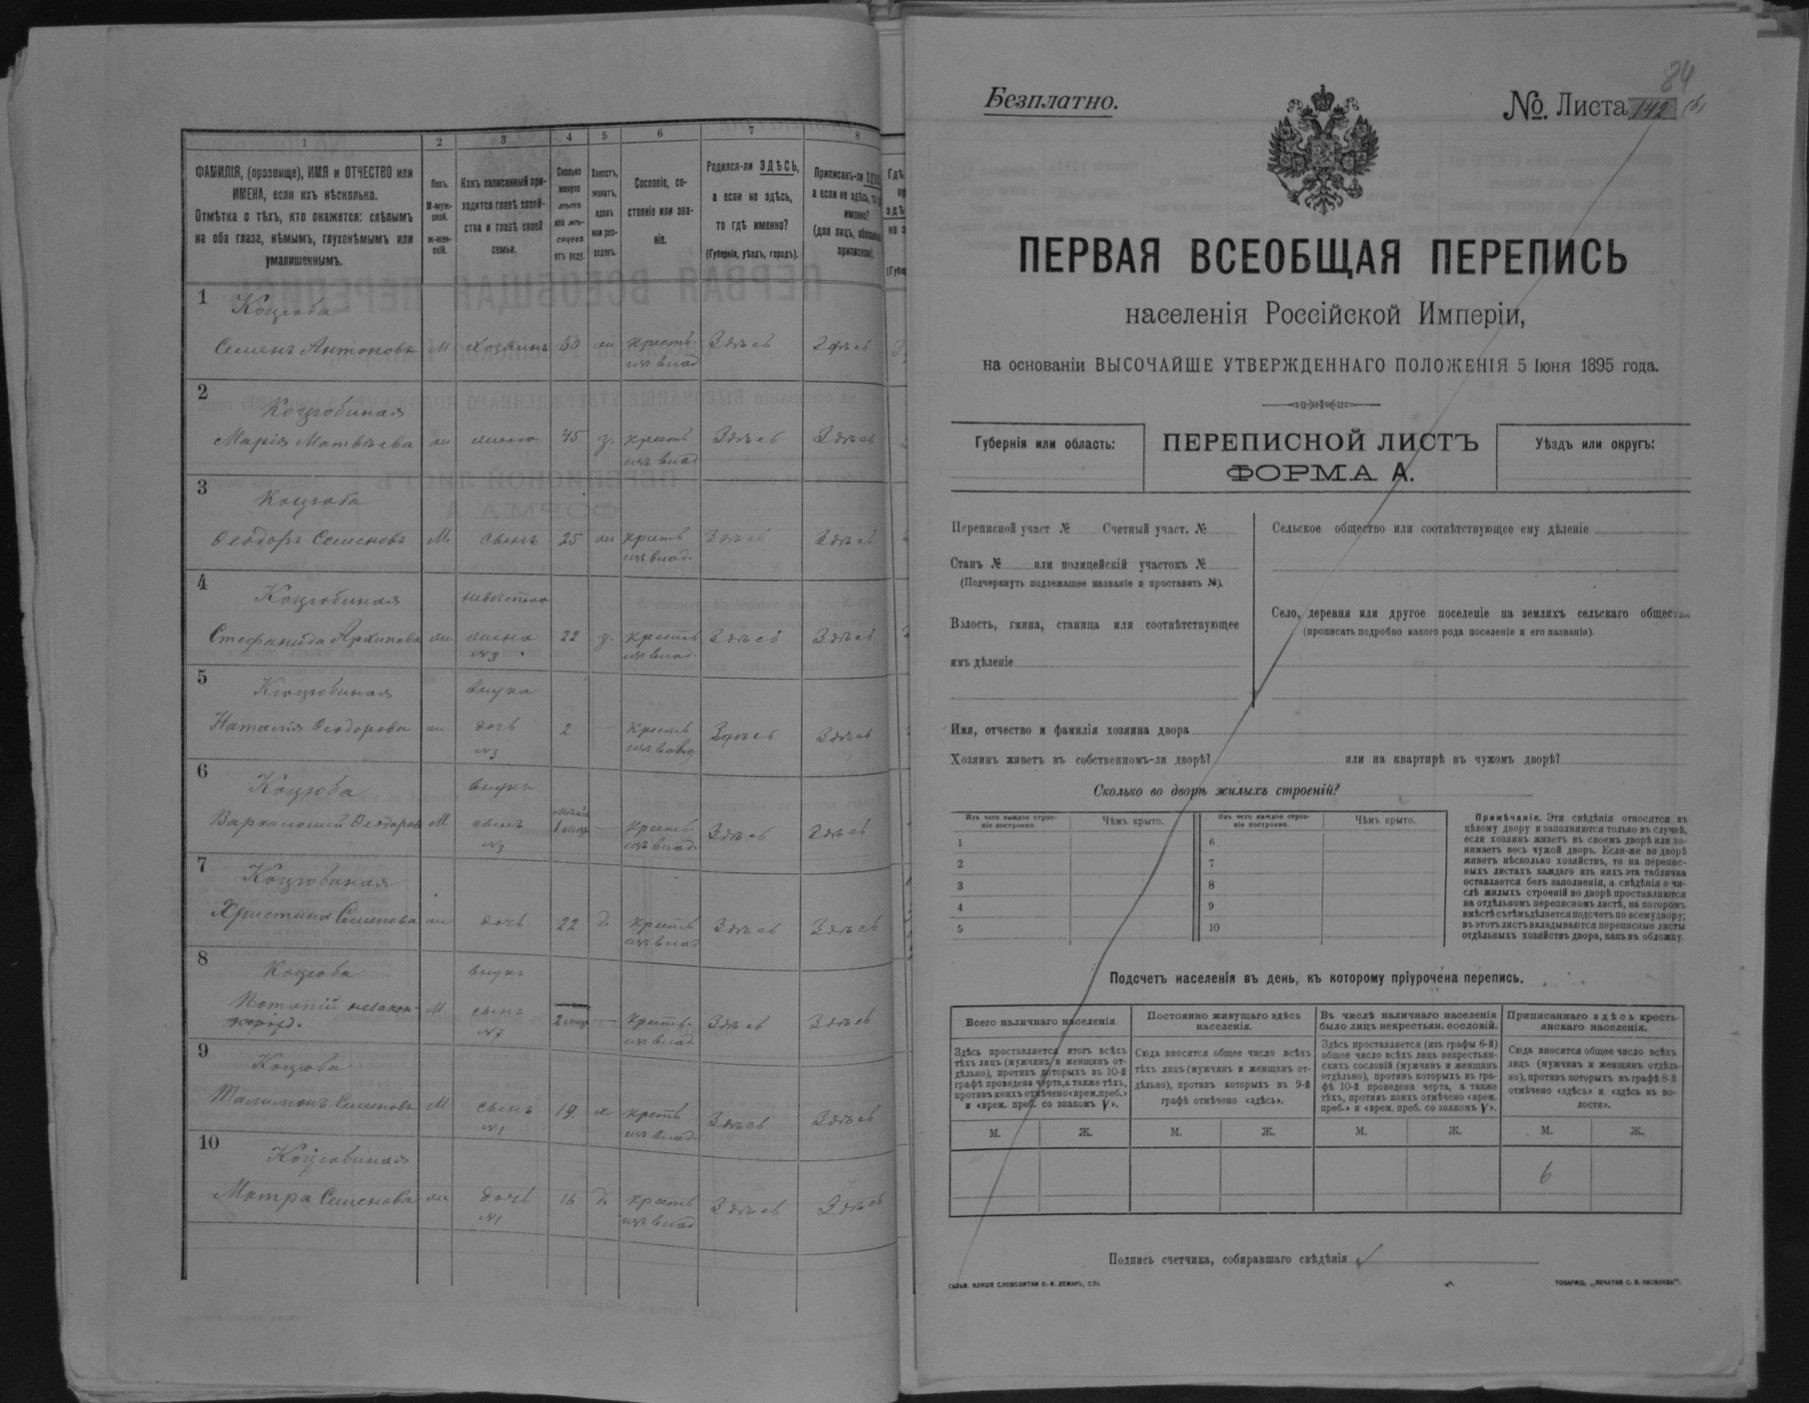 1
2
3
4
5
6
7
8
ФАМИЛІЯ, (прозвище), ИМЯ и ОТЧЕСТВО или
ИМЕНА, если ихъ нѣсколько.
Отмѣтка о тѣхъ, кто окажется: слѣпымъ
на оба глаза, нѣмымъ, глухонѣмымъ или
умалишеннымъ.
Полъ.
М-муж-
ской.
ж-жен-
скій.
Какъ записанный при-
ходится главѣ хозяй-
ства и главѣ своей
семьи.
Сколько
минуло
лѣтъ
или мѣ-
сяцевъ
отъ роду.
Холостъ,
женатъ,
вдовъ
или раз-
веденъ.
Сословіе, со-
стояніе или зва-
ніе.
Родился-ли ЗДѢСЬ,
а если не здѣсь,
то гдѣ именно?
(Губернія, уѣздъ, городъ).
Приписанъ-ли
а если не здѣсь,
именно?
(для лицъ,
приписки).
1
Коцюба
Семенъ Антоновъ М хозяинъ 50 ж крестъ Здѣсь Здѣсь
изъ влад
2
Коцюбиная
Марія Матвѣева ж жена 45 з. крестъ Здѣсь Здѣсь
изъ влад
3
Коцюба
Ѳеодоръ Семеновъ М. сынъ 25 ж крестъ Здѣсь Здѣсь
изъ влад.
4
Коцюбиная невѣстка
Стефанида Архипова ж. жена 22 з. крестъ Здѣсь Здѣсь
№3 изъ влад.
5
Коцюбиная внука
Наталія Ѳеодорова ж дочь 2 — крестъ Здѣсь Здѣсь
№3 изъ влад
6
Коцюба внукъ
Ѳеодоров М сынъ 1 — крестъ Здѣсь Здѣсь
№3 изъ влад.
7
Коцюбиная
Христина Семенова ж дочь 22 д. крестъ Здѣсь Здѣсь
изъ влад
8
Коцюба внукъ
Потапій незакон- М сынъ 2 — крестъ. Здѣсь Здѣсь
№7 изъ влад.
9
Коцюба
Семеновъ М сынъ 19 х крестъ Здѣсь Здѣсь
№1 изъ влад.
10
Коцюбиная
Мотря Семенова ж дочь 16 д. крестъ Здѣсь Здѣсь
№1 изъ влад
84
Безплатно.
№. Листа 142
ПЕРВАЯ ВСЕОБЩАЯ ПЕРЕПИСЬ
населенія Россійской Имперіи,
на основаніи ВЫСОЧАЙШЕ УТВЕРЖДЕННАГО ПОЛОЖЕНІЯ 5 Іюня 1895 года.
Губернія или область:
ПЕРЕПИСНОЙ ЛИСТЪ
ФОРМА А.
Уѣздъ или округъ:
Переписной участ № Счетный участ. №
Станъ № или полицейскій участокъ №
(Подчеркнуть подлежащее названіе и проставить №).
Волость, гмина, станица или соотвѣтствующее
имъ дѣленіе
Сельское общество или соотвѣтствующее ему дѣленіе
Село, деревня или другое поселеніе на земляхъ сельскаго общества
(прописать подробно какого рода поселеніе и его названіе).
Имя, отчество и фамилія хозяина двора
Хозяинъ живетъ въ собственномъ-ли дворѣ? или на квартирѣ въ чужомъ дворѣ?
Сколько во дворѣ жилыхъ строеній?
Изъ чего каждое строе-
ніе построено.
Чѣмъ крыто.
Изъ чего каждое строе-
ніе построено.
Чѣмъ крыто.
1 6
2 7
3 8
4 9
5 10
Примѣчаніе. Эти свѣдѣнія относятся къ
цѣлому двору и заполняются только въ случаѣ,
если хозяинъ живетъ въ своемъ дворѣ или за-
нимаетъ весь чужой дворъ. Если-же во дворѣ
живетъ нѣсколько хозяйствъ, то на перепис-
ныхъ листахъ каждаго изъ нихъ эта табличка
оставляется безъ заполненія, а свѣдѣнія о чи-
слѣ жилыхъ строеній во дворѣ проставляются
на отдѣльномъ переписномъ листѣ, на которомъ
вмѣстѣ съ тѣмъ дѣлается подсчетъ по всему двору;
въ этотъ листъ вкладываются переписные листы
отдѣльныхъ хозяйствъ двора, какъ въ обложку.
Подсчетъ населенія въ день, къ которому пріурочена перепись.
Всего наличнаго населенія.
Здѣсь проставляется итогъ всѣхъ
тѣхъ лицъ (мужчинъ и женщинъ от-
дѣльно), противъ которыхъ въ 10-й
графѣ проведена черта, а также тѣхъ,
противъ коихъ отмѣчено «врем. преб.»
и «врем. преб. со знакомъ V».
Постоянно живущаго здѣсь
населенія.
Сюда вносится общее число всѣхъ
тѣхъ лицъ (мужчинъ и женщинъ от-
дѣльно), противъ которыхъ въ 9-й
графѣ отмѣчено «здѣсь».
Въ числѣ наличнаго населенія
было лицъ некрестьян. сословій.
Здѣсь проставляется (изъ графы 6-й)
общее число всѣхъ лицъ некрестьян-
скихъ сословій (мужчинъ и женщинъ
отдѣльно), противъ которыхъ въ гра-
фѣ 10-й проведена черта, а также
тѣхъ, противъ коихъ отмѣчено «врем.
преб.» и «врем. преб. со знакомъ V».
Приписаннаго здѣсь кресть-
янскаго населенія.
Сюда вносится общее число всѣхъ
лицъ (мужчинъ и женщинъ отдѣль-
но), противъ которыхъ въ графѣ 8-й
отмѣчено «здѣсь» и «здѣсь въ во-
лости».
М. Ж. М. Ж. М. Ж. М. Ж.
6
Подпись счетчика, собиравшаго свѣдѣнія
ГАЛЬВ. КЛИШЕ СЛОВОЛИТНИ О. И. ЛЕМАНЪ, СПБ.
ТОВАРИЩ. „ПЕЧАТНИ С. П. ЯКОВЛЕВА".